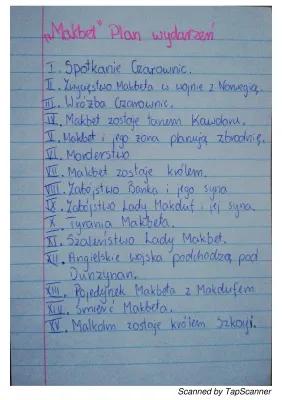 „Makbet" Plan wydarzeń
I. Spotkanie Czarownic.
II. Zwycięstwo Makbeta w wojnie z Norwegią.
III. Wróżba Czarownic.
IV. Makbet zostaje tanem Kawdoru.
V. Makbet i jego żona planują zbrodnię.
VI. Morderstwo
VII. Makbet zostaje królem.
VIII. Zabójstwo Banka i jego syna
IX. Zabójstwo Lady Makduf i jej syna.
X. Tyrania Makbeta.
XI. Szaleństwo Lady Makbet.
XII. Angielskie wojska podchodzą pod
Dunzynan.
XIII. Pojedynek Makbeta z Makdufem
XIV. Śmierć Makbeta.
XV. Malkolm zostaje królem Szkocji.
Scanned by TapScanner